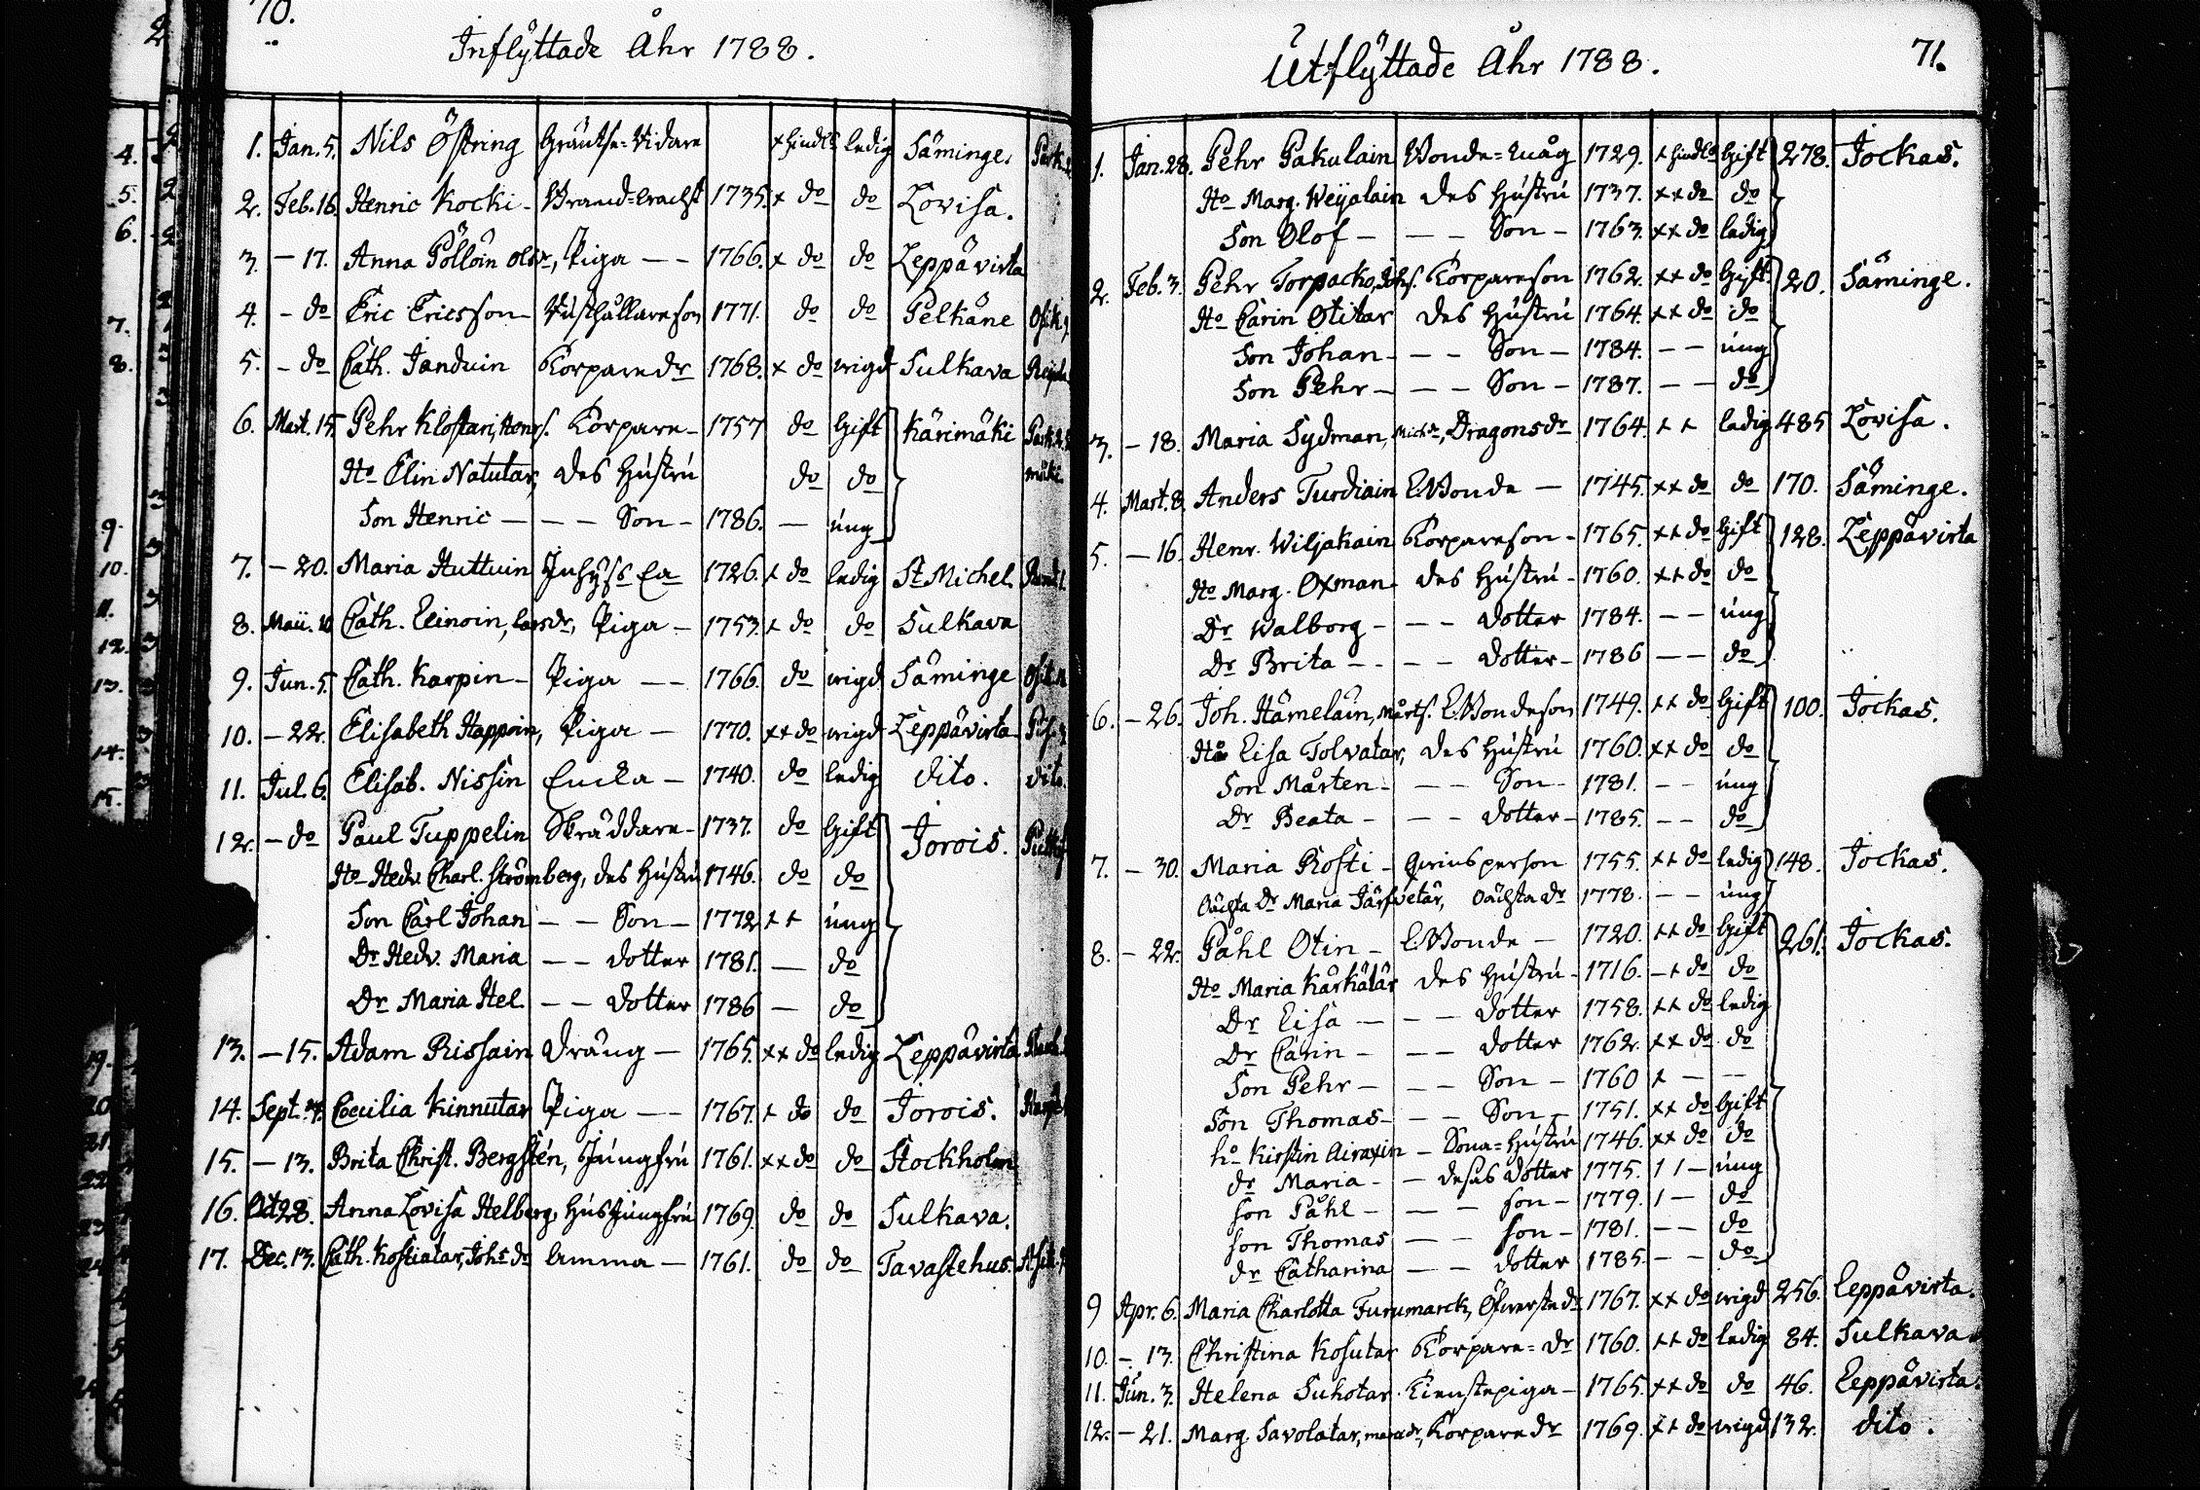 70.
Inflyttade Åhr 1788.
1. Jan. 5. Nils Östring ledig Säminge.
2. Feb. 16. Henric Kocki - 1735. x do do Lovisa.
3. - 17. Anna Pöllöin Piga - - 1766. x do do Leppävirta
4. - do Eric Ericsson - 1771. do do Pelkäne
5. - do Cath. Janduin Torpare dr 1768. x do wigd Sulkava
6. Mart. 15. Pehr Klostari, Torpare - 1757 do Gift Kärimäki
Ho Elin Natutar, des Hustru do do
Son Henric - - - Son - 1786. - ung
7. - 20. Maria Huttuin Inhyss 1726. x do ledig St Michel.
8. Maii. 10 Cath. Piga - 1753. x do do Sulkava
9. Jun. 5. Cath. Karpin - Piga - - 1766. do wigd Säminge
10. - 22. Elisabeth Happoin, Piga - 1770. xx do wigd Leppävirta
11. Jul. 6. Elisab. Nissin Encka - 1740. do ledig dito. dito.
12. - do Paul Tuppelin Skräddare - 1737. do Gift Jorois.
Ho Hedv. Charl. Strömberg, des Hustru 1746. do do
Son Carl Johan - - Son - 1772 x x ung
Dr Hedv. Maria - - dotter 1781. - do
Dr Maria Hel. - - dotter 1786 - do
13. - 15. Adam Rissain Dräng - 1765. xx do ledig Leppävirta
14. Sept. Cecilia Kinnutar Piga - - 1767. x do do Jorois.
15. - 13. Brita Christ. Bergstén, Jungfru 1761. xx do do Stockholm
16. Oct 28. Anna Lovisa Helberg, Husjungfru 1769. do do Sulkava.
17. Dec. 13. Cath. Kostiatar, Johs dr Amma - 1761. do do Tavastehus.
71.
Utflyttade Åhr 1788.
1. Jan. 28. Pehr Pakulain Bonde= 1729. x Gift 278. Jockas.
Ho Marg. Weijalain des Hustru 1737. xx do do
Son Olof - - - Son - 1763. xx do ledig
2. Feb. 3. Pehr Torpacko, Torpareson 1762. xx do Gift. 20. Säminge.
Ho Carin Otitar des Hustru 1764. xx do do
Son Johan - - - Son - 1784. - - ung
Son Pehr - - - Son - 1787. - - do
3. - 18. Maria Sydman, Dragons dr 1764. x x ledig 485 Lovisa.
4. Mart. 8. Anders Turdiain Bonde - 1745. xx do do 170. Säminge.
5. - 16. Henr. Wiljakain Torpareson - 1765. xx do Gift 128. Leppävirta
Ho Marg. Oxman des Hustru - 1760. xx do do
Dr Walborg - - - dotter 1784. - - ung
Dr Brita - - - - dotter - 1786 - - do
6. - 26. Joh. Hämeläin, Mårts. Bondeson 1749. xx do Gift 100. Jockas.
Ho Lisa Tolvatar, des Hustru 1760. xx do do
Son Mårten - - - Son - 1781. - - ung
Dr Beata - - - dotter - 1785. - - do
7. - 30. Maria Rosti - person 1755. xx do ledig 148. Jockas.
Oächta Dr Maria Järfvetär, Oächta dr 1778. - - ung
8. - 22. Påhl Otin - Bonde - 1720. xx do Gift 261. Jockas.
Ho Maria Kärkätär des Hustru - 1716. - x do do
Dr Lisa - - - dotter 1758. xx do ledig
Dr Carin - - - dotter 1762. xx do do
Son Pehr - - - Son - 1760 x - -
Son Thomas - - - Son - 1751. xx do Gift
ho Kirstin Airaxin - Sona=Hustru 1746. xx do do
dr Maria - - dotter 1775. 1 1 - ung
son Påhl - - - son - 1779. 1 - do
son Thomas - - son - 1781. - - do
dr Catharina - - dotter 1785. - - do
9 Apr. 6. Maria Charlotta Furumarck, Öfverste dr 1767. xx do wigd 256. Leppävirta.
10. - 13. Christina Kosutar Torpare= dr 1760. xx do ledig 84. Sulkava.
11. Jun. 3. Helena Suhotar Tienstepiga - 1765. xx do do 46. Leppävirta.
12. - 21. Marg. Savolatar, Torpare dr 1769. xx do wigd 132. dito.